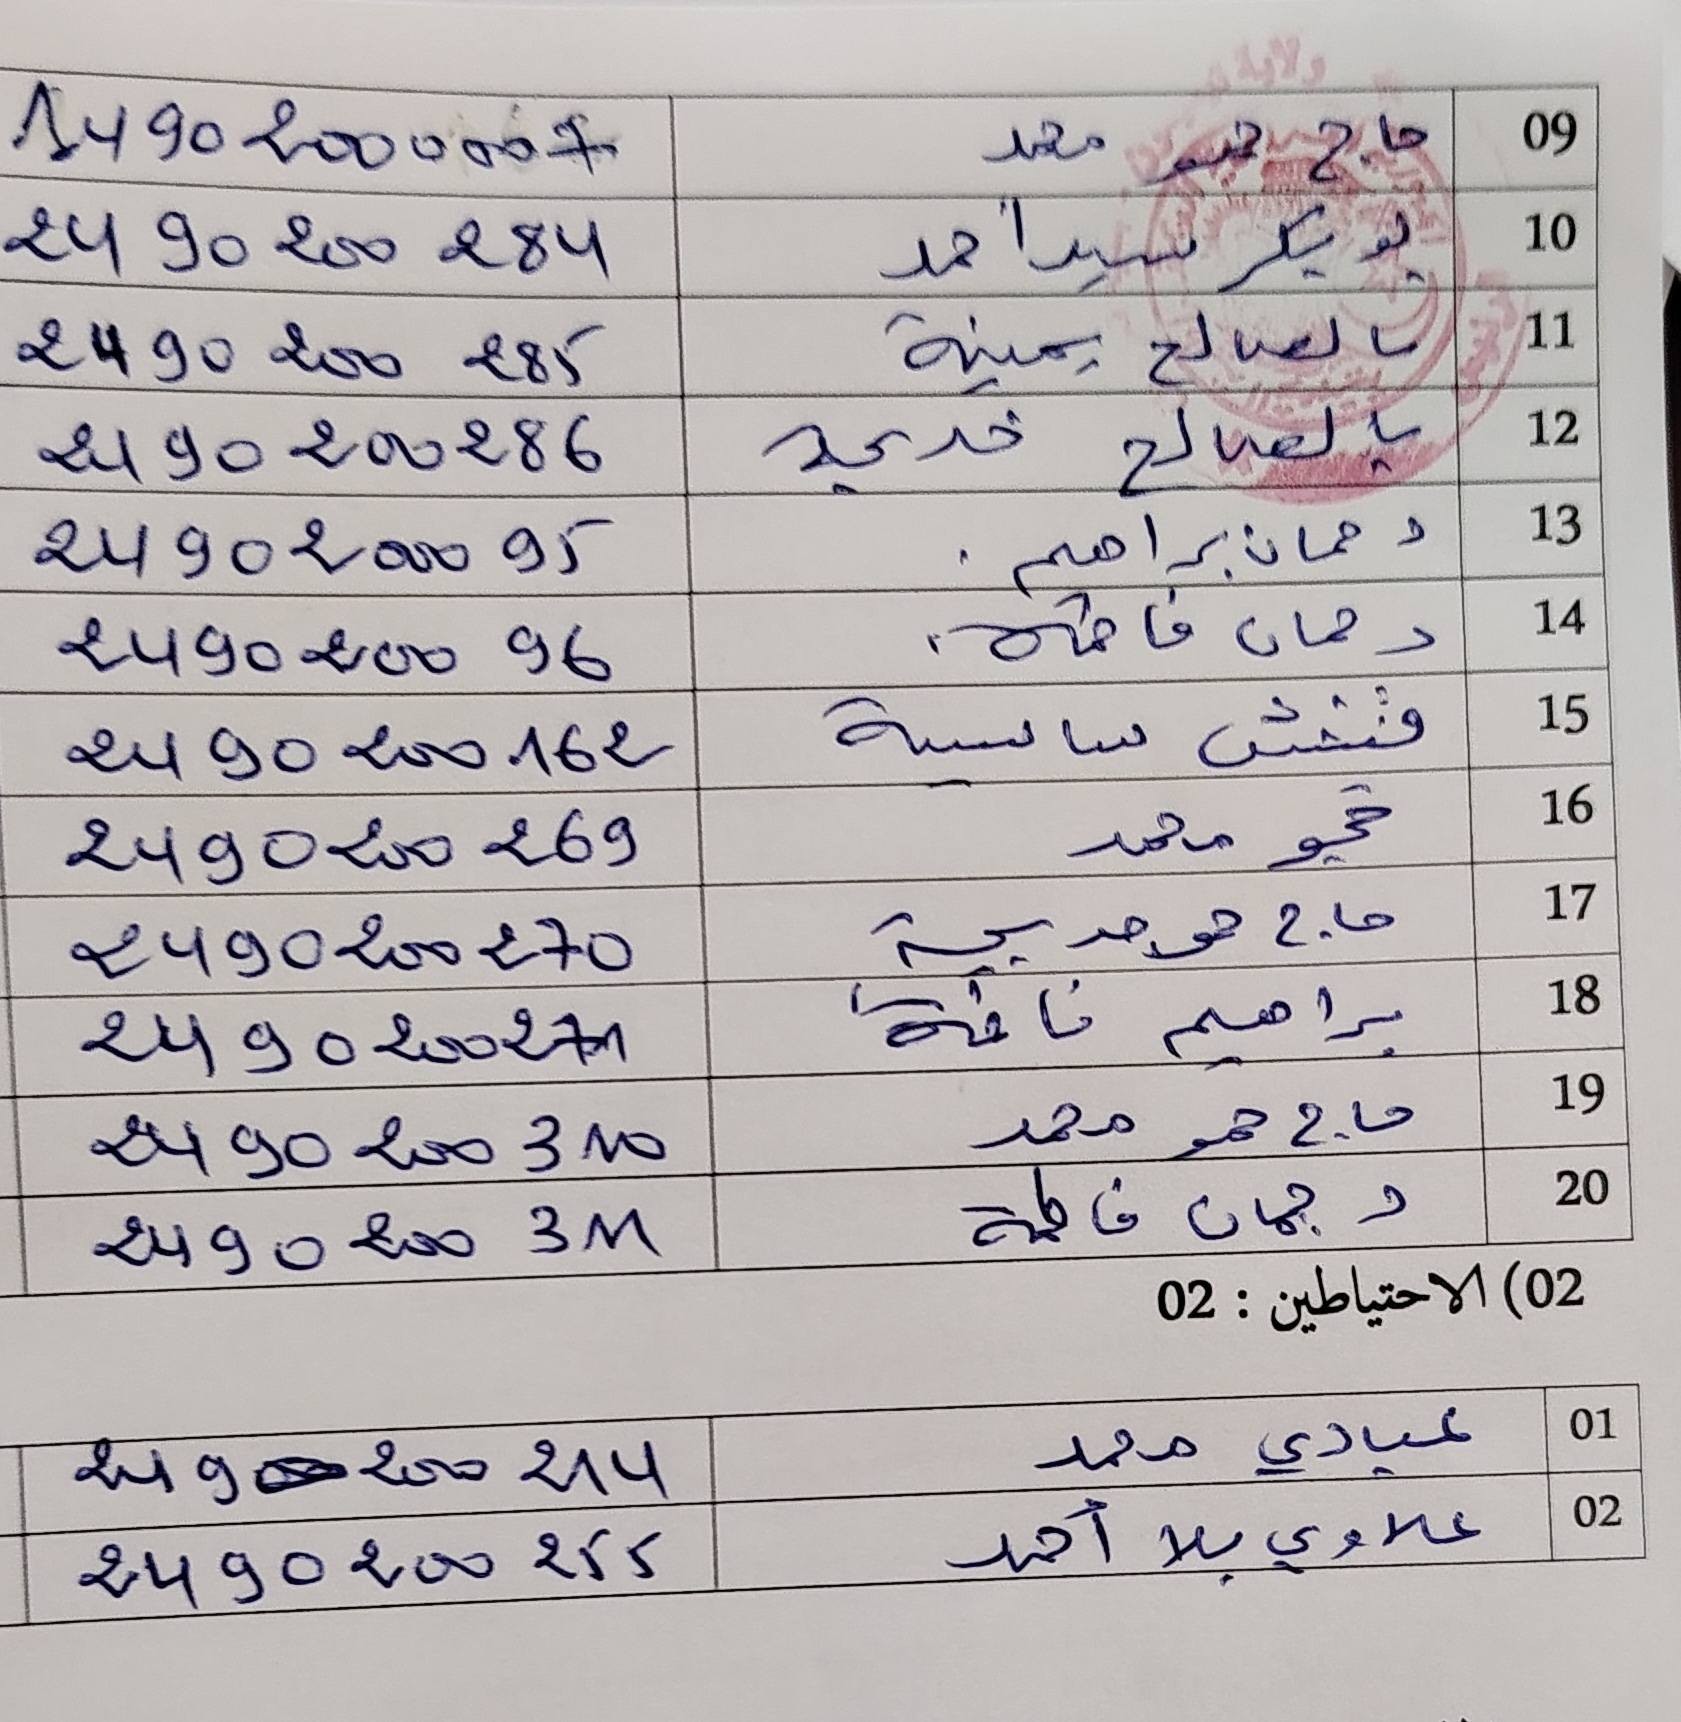 09 حاج حمو محمد 1490200007
10 بوبكر سيد أحمد 2490200284
11 بالصالح يمينة 2490200285
12 بالصالح خديجة 2490200286
13 دحمان براهيم 249020095
14 دحمان فاطمة 249020096
15 سايسية 2490200162
16 محمد 2490200269
17 حاج حمو خديجة 2490200270
18 براهيم فاطمة 2490200271
19 حاج حمو محمد 2490200310
20 دحمان فاطمة 2490200311
02) الاحتياطين : 02
01 عبادي محمد 2490200214
02 علاوي بلا أحمد 2490200255